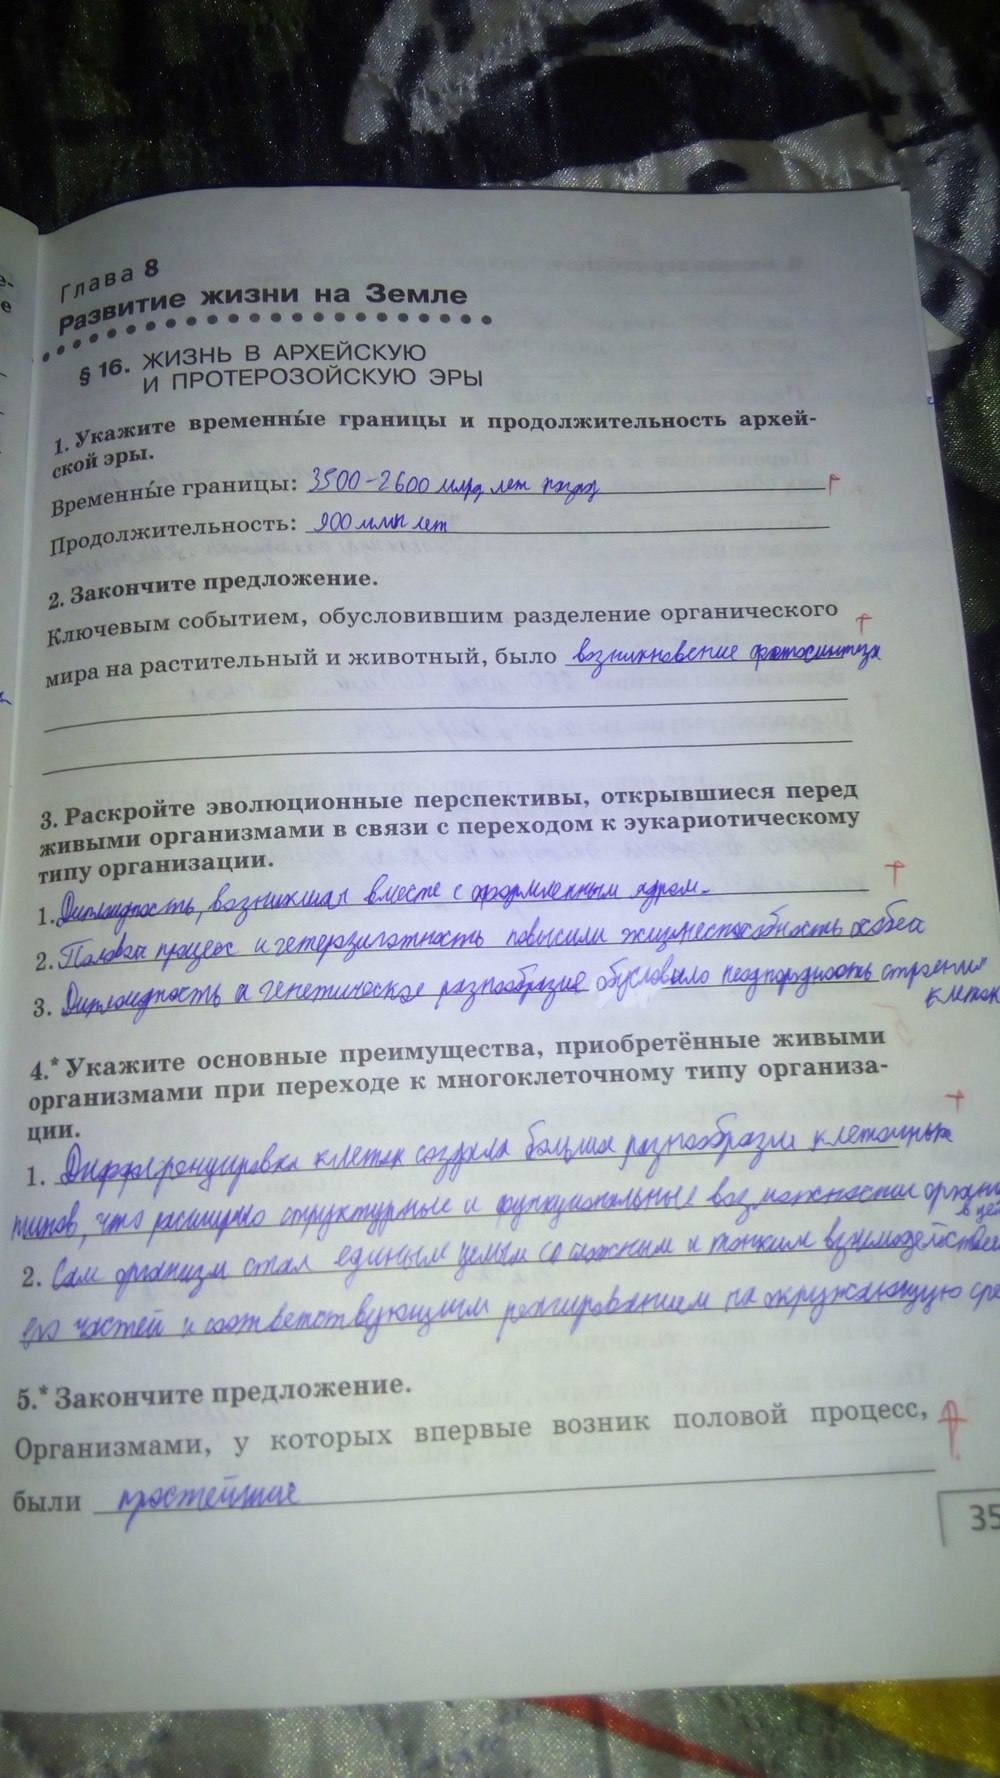 Глава 8
Развитие жизни на Земле
§ 16. ЖИЗНЬ В АРХЕЙСКУЮ
И ПРОТЕРОЗОЙСКУЮ ЭРЫ
1. Укажите временны́е границы и продолжительность архей-
ской эры.
Временны́е границы: 3500-2600 млрд лет назад
Продолжительность: 900 млн лет
2. Закончите предложение.
Ключевым событием, обусловившим разделение органического
мира на растительный и животный, было возникновение фотосинтеза
3. Раскройте эволюционные перспективы, открывшиеся перед
живыми организмами в связи с переходом к эукариотическому
типу организации.
1. Диплоидность, возникшая вместе с оформленным ядром.
2. Половой процесс и гетерозиготность повысили жизнеспособность особей
3. Диплоидность и генетическое разнообразие обусловило неоднородность строения
клеток
4.* Укажите основные преимущества, приобретённые живыми
организмами при переходе к многоклеточному типу организа-
ции.
1. Дифференцировка клеток создала большое разнообразие клеточных
типов, что расширило структурные и функциональные возможности
2. Сам организм стал единым целым со сложным и тонким взаимодействием
его частей и соответствующим реагированием на окружающую
5.* Закончите предложение.
Организмами, у которых впервые возник половой процесс,
были простейшие
35